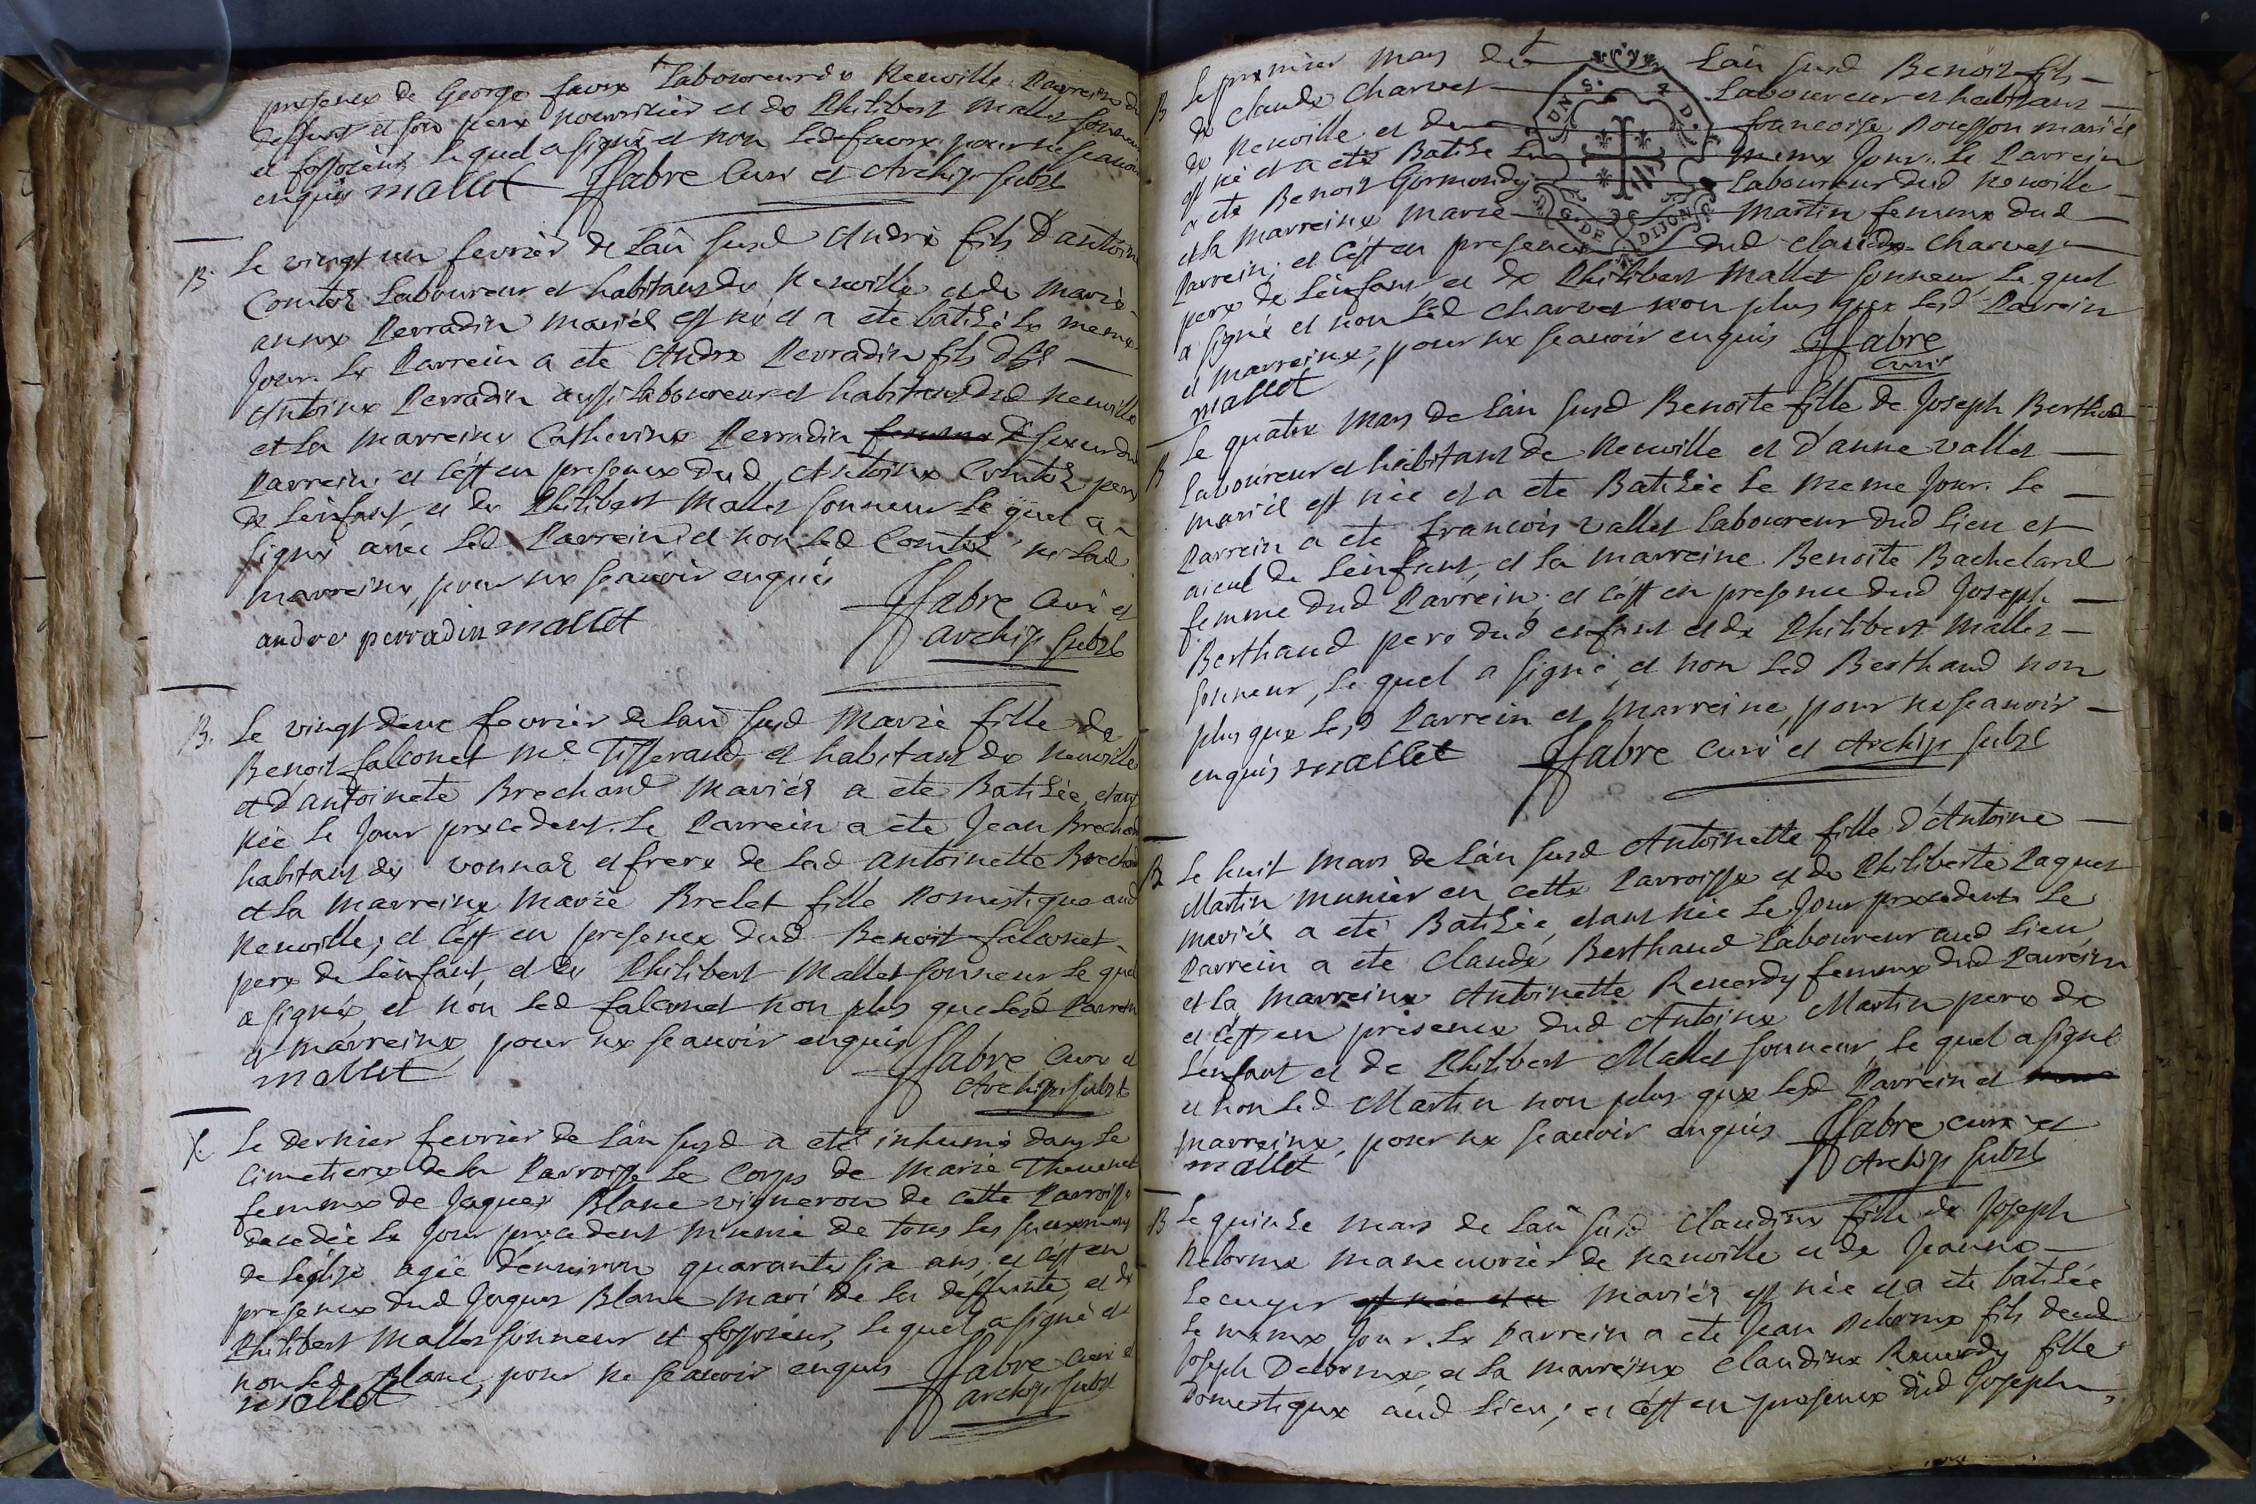 presence de George favre Laboureur de Neuville Parrein du
deffunt et son pere nourricier et de Philibert Mallet sonneur
et fossoieur lequel a signé et non led favre pour ne scavoir
enquis mallet ffabre Curé et Archip. substs
B. Le vingt un fevrier de l'an susd André fils d'antoine
Comte Laboureur et habitant de Neuville et de Marie
anne Perradin mariés est né et a ete batisé le meme
Jour. Le Parrein a ete André Perradin fils d'
Antoine Perradin aussi Laboureur et habitant dud Neuville
et la Marreine Catherine Perradin femme sœur du
Parrein; et c'est en presence dud Antoine Comte pere
de L'enfant, et de Philibert Mallet sonneur Le quel a
signé avec led. Parrein et non led Comte ni lad
marreine, pour ne scavoir enquis
ffabre Curé et
andre perradin mallet
archip. substs
B. Le vingt deux fevrier de L'an susd Marie fille de
Benoit falconet Me Tisserand et habitant de Neuville
et d'antoinete Brechand Mariés a ete Batisée, etant
née Le Jour precedent. Le Parrein a ete Jean Brechand
habitant de vonnas et frere de Lad antoinette Brechand
et La Marreine Marie Brelet fille Domestique aud
Neuville; et c'est en presence dud Benoit falconet
pere de L'enfant, et de Philibert Mallet sonneur, Le quel
a signé et non Led falconet non plus que Lesd Parrein
et Marreine, pour ne scavoir enquis
ffabre Curé et
mallet
Archip. substs
Le dernier fevrier de L'an susd a eté inhumé dans Le
Cimetiere de La Parroisse Le Corps de Marie Thevenet
femme de Jaques Blanc vigneron de cette Parroisse
decedée Le Jour precedent munie de tous Les sacremens
de L'eglise agée d'environ quarante six ans, et c'est en
presence dud Jaques Blanc Mari de La deffunte, et de
Philibert Mallet sonneur et fossoieur, Lequel a signé et
non Led Blanc, pour ne scavoir enquis ffabre Curé et
mallet
archip. substs
B Le premier Mars de L'an susd Benoit fils
de Claude Charvet Laboureur et habitant
de Neuville et de francoise Pousson mariés
est né et a eté Batisé Le meme Jour. Le Parrein
a ete Benoit Gormondy Laboureur dud Neuville
et La Marreine Marie Martin femme dud
Parrein; et c'est en presence dud claude Charvet
pere de L'enfant et de Philibert Mallet sonneur, Le quel
a signé et non Led Charvet non plus que Lesd Parrein
et Marreine, pour ne scavoir enquis ffabre
mallet
Curé
B Le quatre Mars de L'an susd Benoite fille de Joseph Berthaud
Laboureur et habitant de Neuville et d'anne vallet
mariés est née et a ete Batisée Le meme Jour. Le
Parrein a ete francois vallet Laboureur dud Lieu et
aieul de L'enfant, et La marreine Benoite Bachelard
femme dud Parrein; et c'est en presence dud Joseph
Berthaud pere dud enfant et de Philibert Mallet
sonneur, Le quel a signé, et non Led Berthaud non
plus que Lesd Parrein et Marreine, pour ne scavoir
enquis mallet ffabre Curé et Archip substs
B Le huit Mars de L'an susd Antoinette fille d'Antoine
Martin Munier en cette Parroisse et de Philiberte Paquet
mariés a eté Batisée, etant née Le Jour precedent. Le
Parrein a ete Claude Berthaud Laboureur aud Lieu
et La Marreine Antoinette Reverdy femme dud Parrein
et c'est en presence dud Antoine Martin pere de
L'enfant et de Philibert Mallet sonneur, Le quel a signé
et non Led Martin non plus que Lesd Parrein et
marreine, pour ne scavoir enquis ffabre curé et
mallet
Archip substs
B Le quinze Mars de L'an susd Claudine fille de Joseph
Delorme Maneuvrier de Neuville et de Jeanne
Lecuyer est née et a Mariés est née et a ete batisée
Le meme Jour. Le Parrein a ete Jean Delorme fils dud
Joseph Delorme, et La marreine Claudine Reverdy fille
Domestique aud Lieu; et c'est en presence dud Joseph